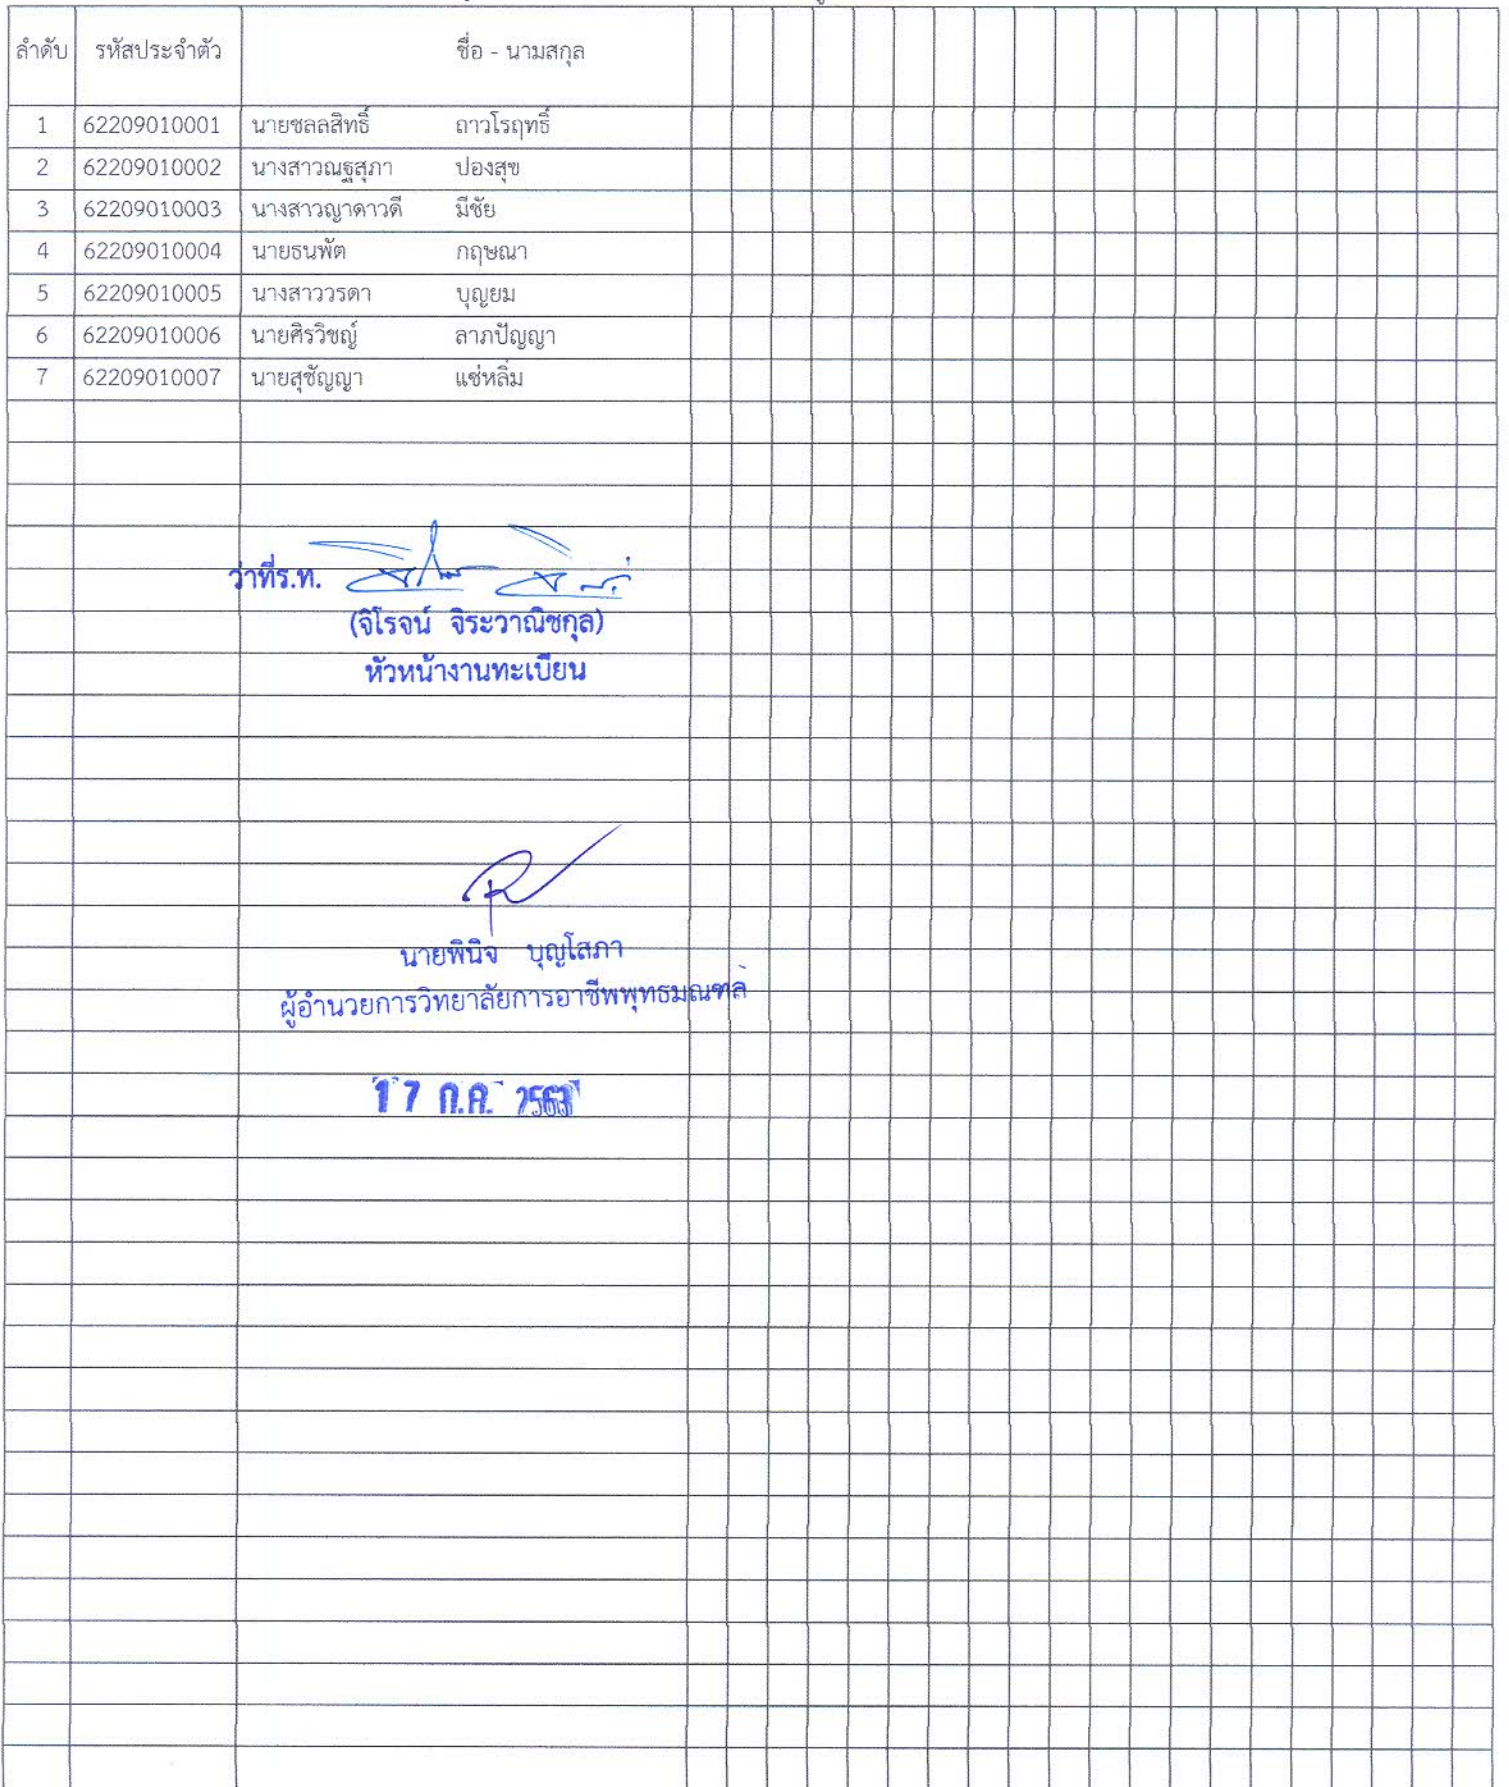 ลำดับ รหัสประจำตัว ชื่อ - นามสกุล
1 62209010001 นายชลลสิทธิ์ ถาวโรฤทธิ์
2 62209010002 นางสาวณฐสุภา ปองสุข
3 62209010003 นางสาวญาดาวดี มีชัย
4 62209010004 นายธนพัต กฤษณา
5 62209010005 นางสาววรดา บุญยม
6 62209010006 นายศิรวิชญ์ ลาภปัญญา
7 62209010007 นายสุชัญญา แซ่หลิ่ม
ว่าที่ร.ท.
(จิโรจน์ จิระวาณิชกุล)
หัวหน้างานทะเบียน
นายพินิจ บุญโสภา
ผู้อำนวยการวิทยาลัยการอาชีพพุทธมณฑล
17 ก.ค. 2563